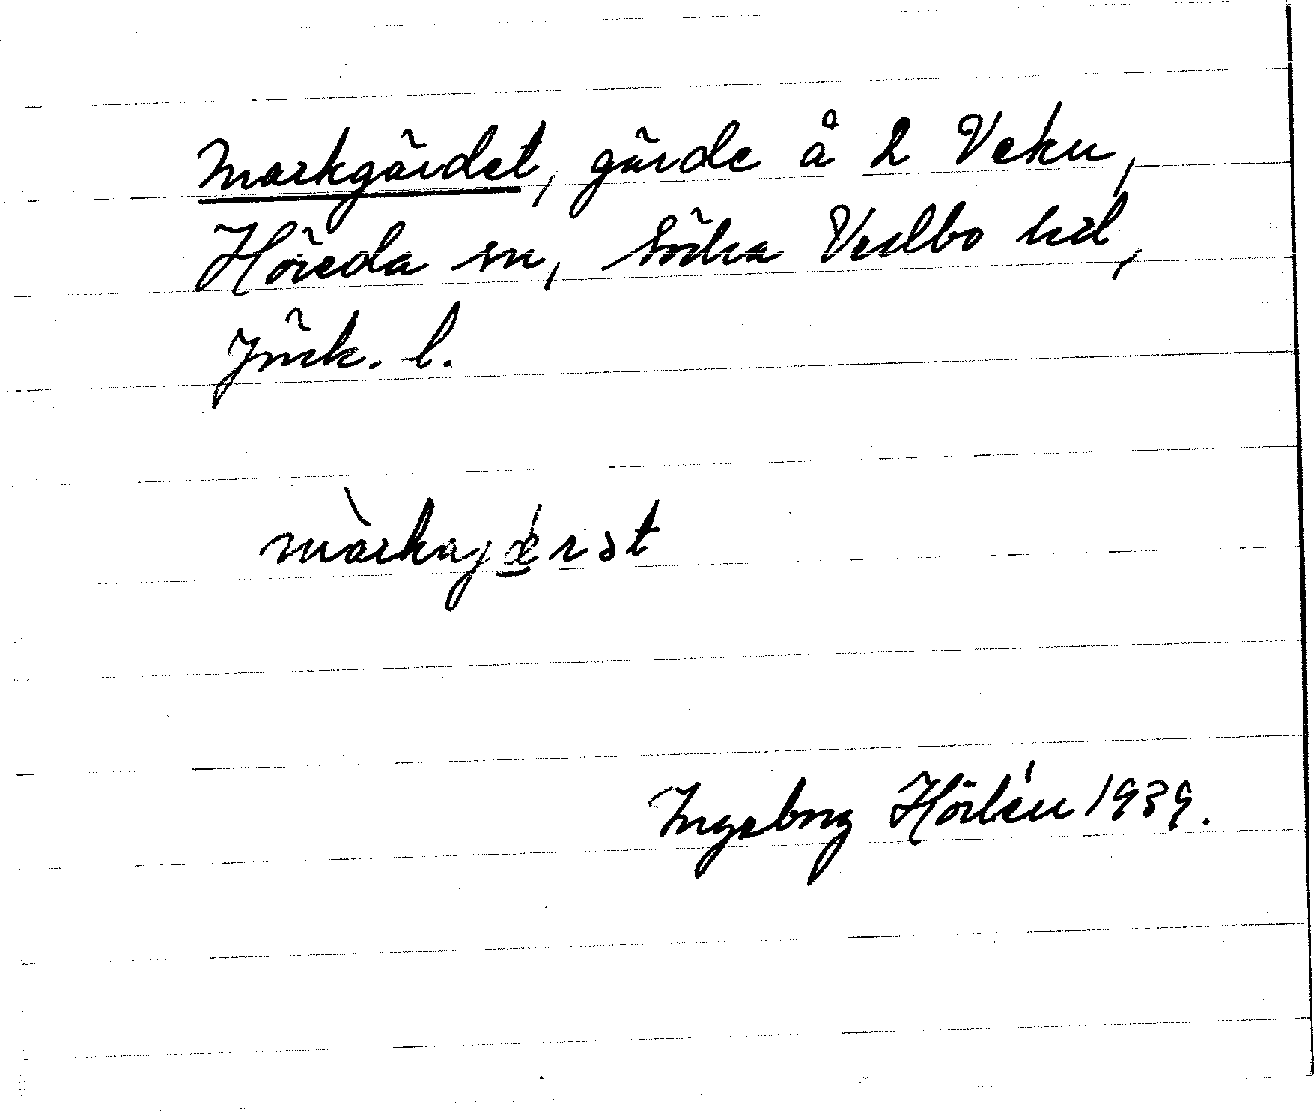 Markgärdet, gärde å 2 Veku,
Höreda sn, Södra Vedbo hd,
Jönk. l.
màrkajǽrət
Ingeborg Hörlén 1939.